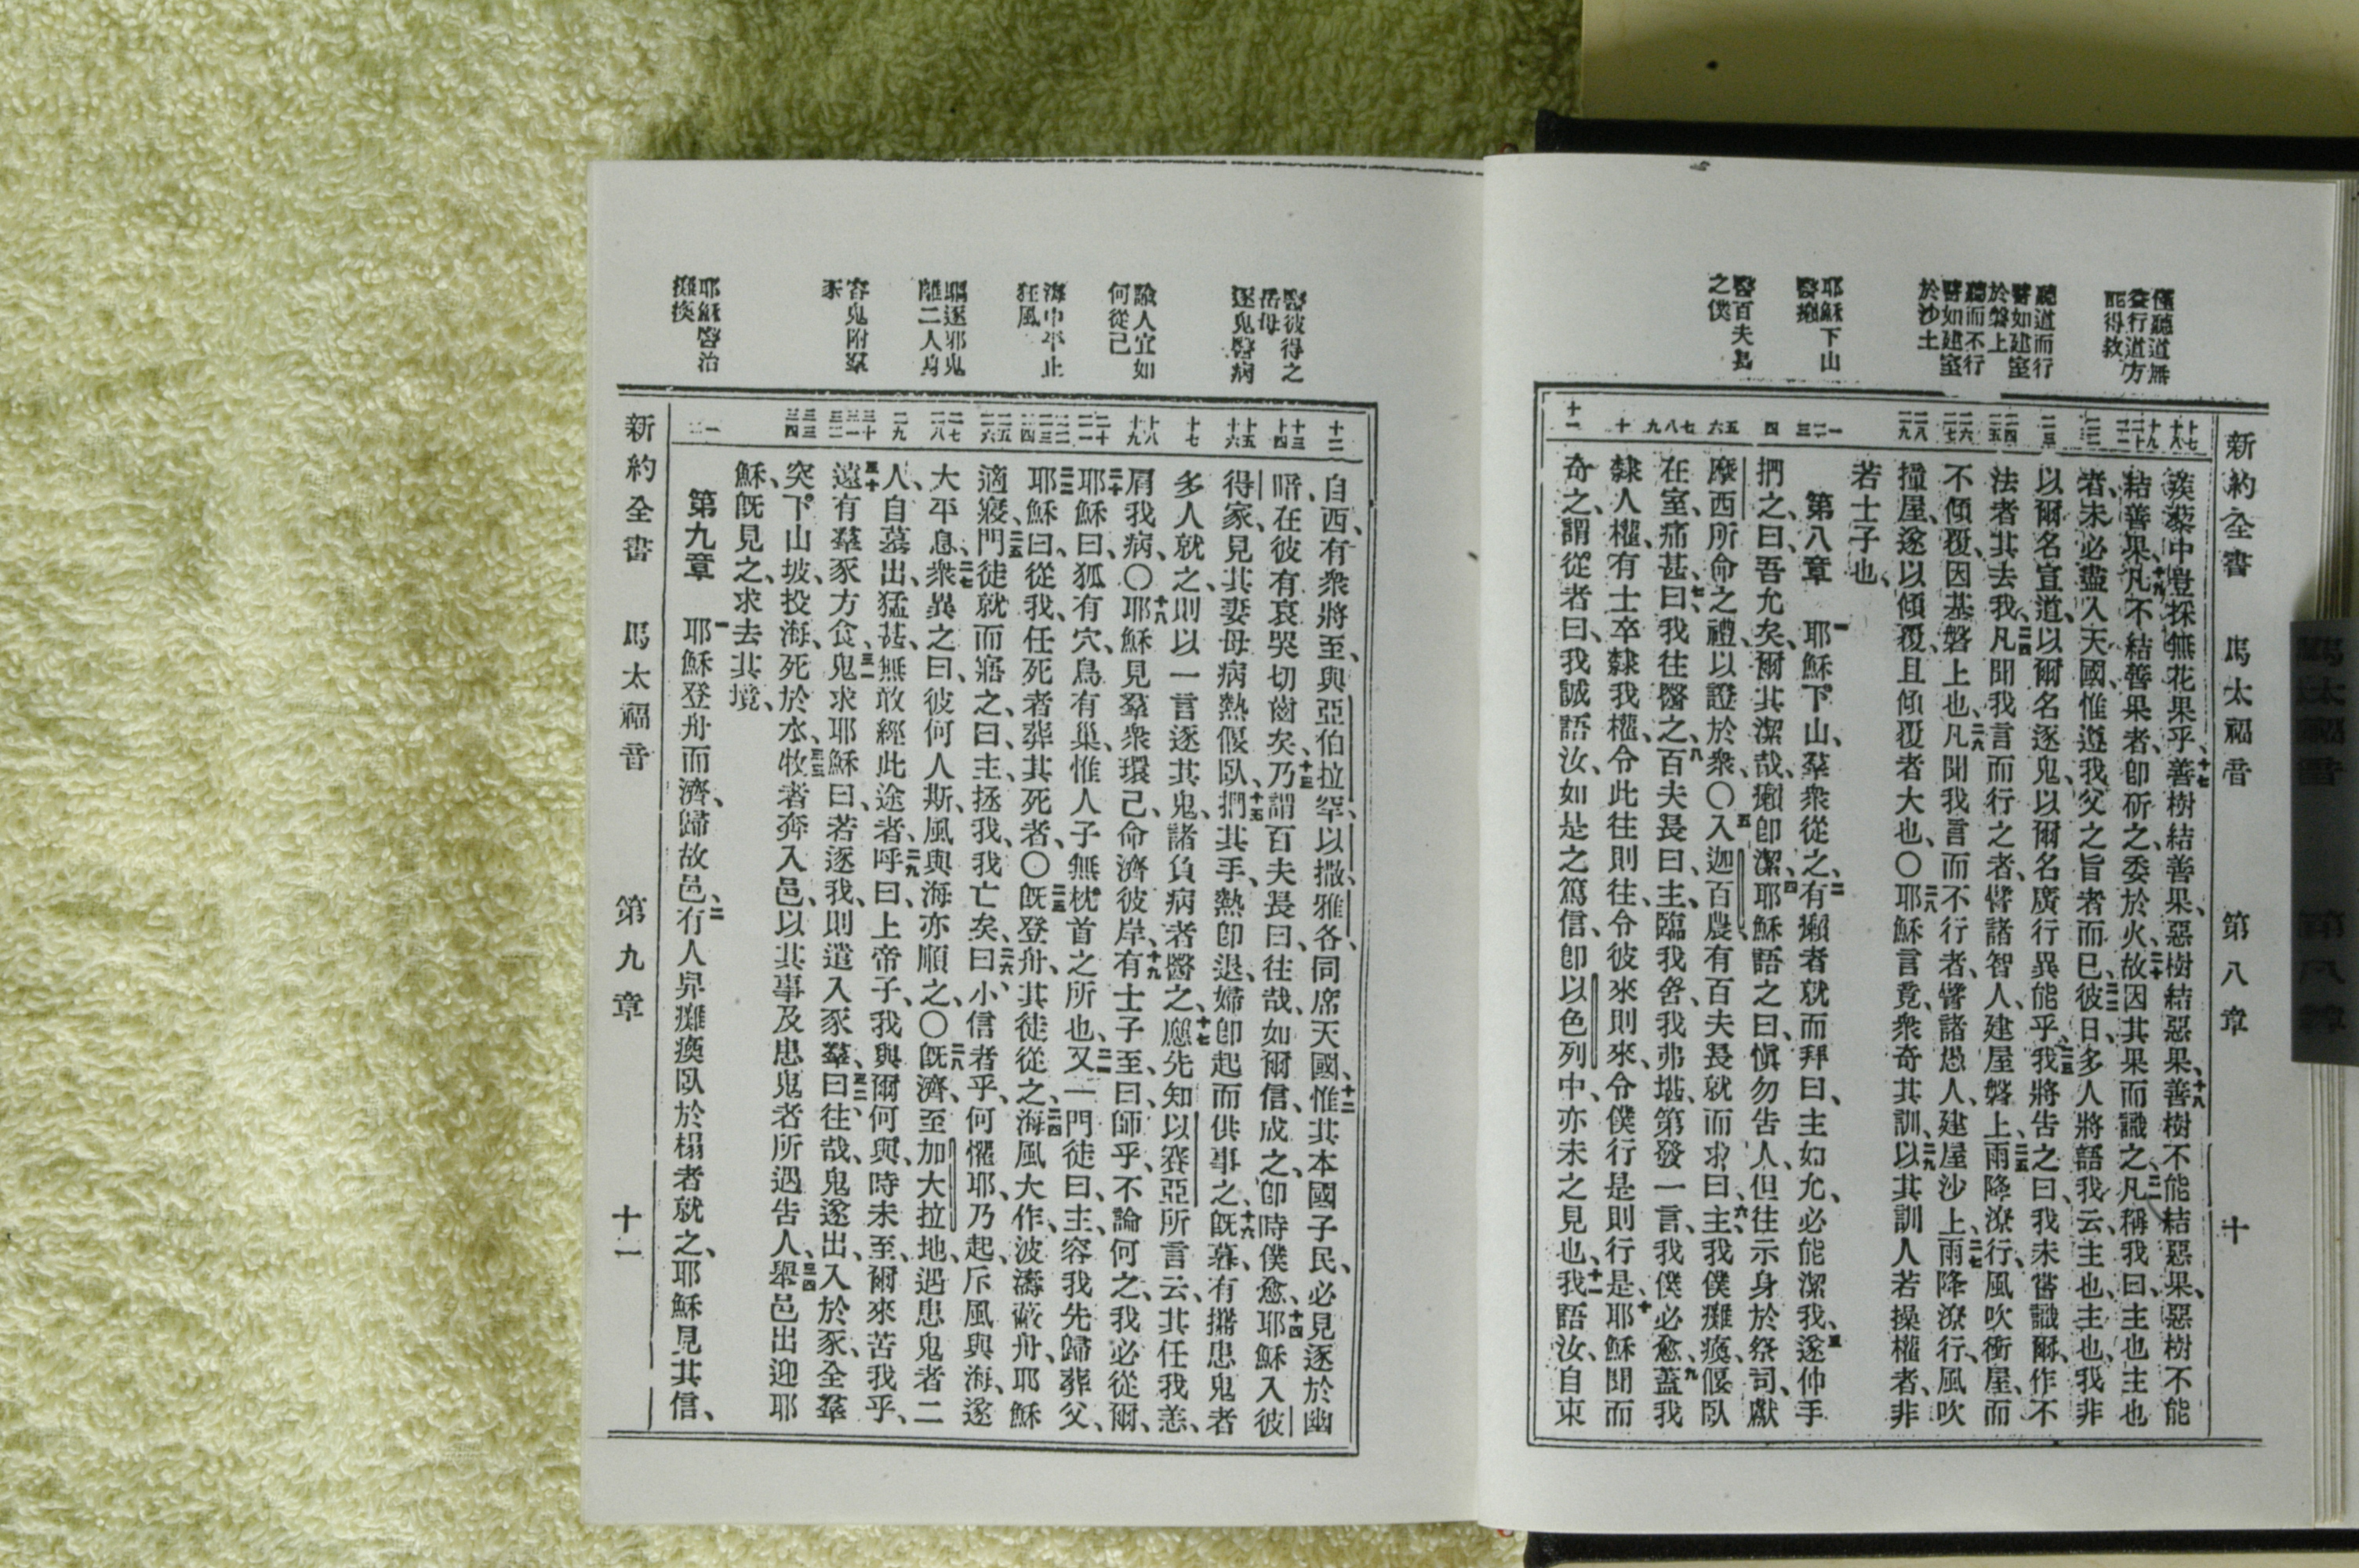 新約全書 馬太福音 第八章 十
僅聽道無
益行道方
能得救
聽道而行
譬如建室
於磐上
聽而不行
譬如建室
於沙土
耶穌下山
醫癩
醫百夫長
之僕
蒺藜中豈採無花果乎、十七善樹結善果、惡樹結惡果、十八善樹不能結惡果、惡樹不能
結善果、十九凡不結善果者、卽斫之、委於火、二十故因其果而識之、二一凡稱我曰、主也主也
者、未必盡入天國、惟遵我父之旨者而已、二二彼日、多人將語我云、主也主也、我非
以爾名宣道、以爾名逐鬼、以爾名廣行異能乎、二三我將告之曰、我未嘗識爾、作不
法者其去我、二四凡聞我言而行之者、譬諸智人、建屋磐上、二五雨降潦行、風吹衝屋、而
不傾覆、因基磐上也、二六凡聞我言而不行者、譬諸愚人、建屋沙上、二七雨降潦行、風吹
撞屋、遂以傾覆、且傾覆者大也、〇二八耶穌言竟、衆奇其訓、二九以其訓人若操權者、非
若士子也、
第八章 一耶穌下山、羣衆從之、二有癩者就而拜曰、主如允、必能潔我、三遂伸手
捫之曰、吾允矣、爾其潔哉、癩卽潔、四耶穌語之曰、愼勿告人、但往示身於祭司、獻
摩西所命之禮、以證於衆、〇五入迦百農、有百夫長就而求曰、六主、我僕癱瘓、偃臥
在室、痛甚、七曰、我往醫之、八百夫長曰、主、臨我舍、我弗堪、第發一言、我僕必愈、九蓋我
隸人權、有士卒隸我權、令此往則往、令彼來則來、令僕行是則行是、十耶穌聞而
奇之、謂從者曰、我誠語汝、如是之篤信、卽以色列中、亦未之見也、十一我語汝、自東
醫彼得之
岳母
逐鬼醫病
諭人宜如
何從己
海中平止
狂風
驅逐邪鬼
離二人身
容鬼附羣
豕
耶穌醫治
癱瘓
自西、有衆將至、與亞伯拉罕、以撒、雅各、同席天國、十二惟其本國子民、必見逐於幽
暗、在彼有哀哭切齒矣、十三乃謂百夫長曰、往哉、如爾信、成之、卽時僕愈、十四耶穌入彼
得家、見其妻母病熱偃臥、十五捫其手、熱卽退、婦卽起而供事之、十六旣暮、有攜患鬼者
多人就之、則以一言逐其鬼、諸負病者醫之、十七應先知以賽亞所言云、其任我恙、
屑我病、〇十八耶穌見羣衆環己、命濟彼岸、十九有士子至曰、師乎、不論何之、我必從爾、
二十耶穌曰、狐有穴、鳥有巢、惟人子無枕首之所也、二一又一門徒曰、主、容我先歸葬父、
二二耶穌曰、從我、任死者葬其死者、〇二三旣登舟、其徒從之、二四海風大作、波濤蔽舟、耶穌
適寢、二五門徒就而寤之曰、主、拯我、我亡矣、二六曰、小信者乎、何懼耶、乃起、斥風與海、遂
大平息、二七衆異之曰、彼何人斯、風與海亦順之、〇二八旣濟、至加大拉地、遇患鬼者二
人、自墓出、猛甚、無敢經此途者、二九呼曰、上帝子、我與爾何與、時未至、爾來苦我乎、
三十遠有羣豕方食、三一鬼求耶穌曰、若逐我、則遣入豕羣、三二曰往哉、鬼遂出、入於豕、全羣
突下山坡、投海、死於水、三三牧者奔入邑、以其事及患鬼者所遇告人、三四舉邑出迎耶
穌、旣見之、求去其境、
第九章 一耶穌登舟而濟、歸故邑、二有人舁癱瘓臥於榻者就之、耶穌見其信、
新約全書 馬太福音 第九章 十一